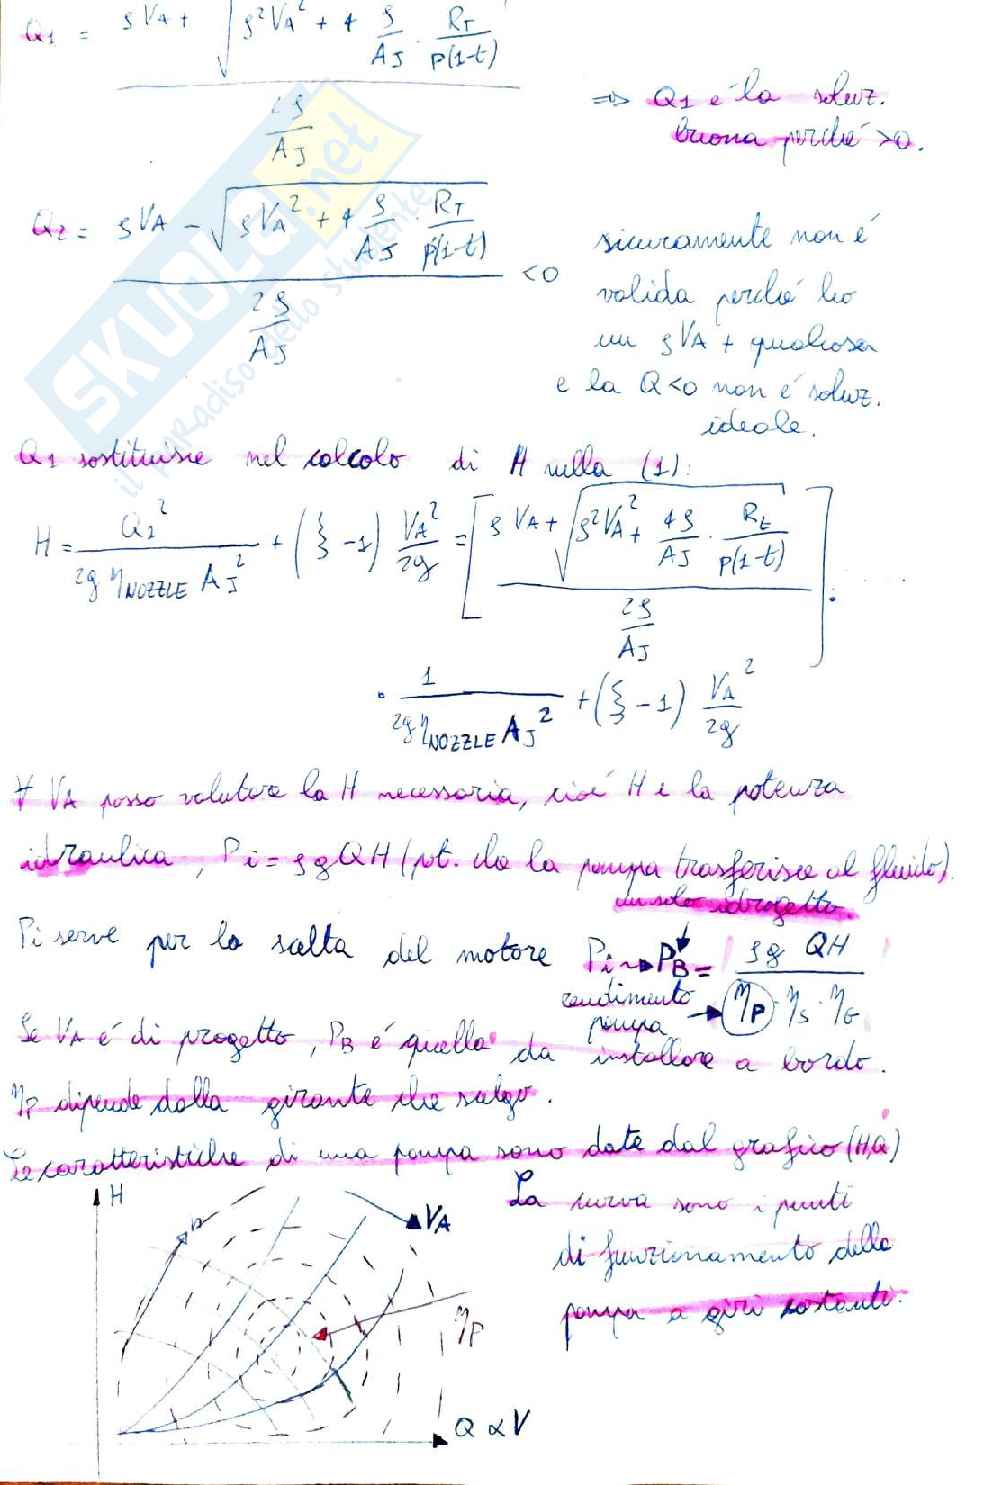 Q1 = ρVA + √(ρ²VA² + 4 ρ/AJ · RT/p(1-t)) / (2ρ/AJ)
⇒ Q1 è la soluz.
buona perché >0.
Q2 = ρVA - √(ρVA² + 4 ρ/AJ · RT/p(1-t)) / (2ρ/AJ) <0
sicuramente non è
valida perché ho
un ρVA + qualcosa
e la Q<0 non è soluz.
ideale.
Q1 sostituisce nel calcolo di H nella (1):
H = Q1² / (2g ηNOZZLE AJ²) + (ξ-1) VA²/2g = [ρVA + √(ρ²VA² + 4ρ/AJ · Rt/p(1-t)) / (2ρ/AJ)] ·
· 1/(2g ηNOZZLE AJ²) + (ξ-1) VA²/2g
∀ VA posso valutare la H necessaria, cioè H è la potenza
idraulica, Pi = ρgQH (pot. che la pompa trasferisce al fluido).
un solo idrogetto.
Pi serve per la scelta del motore Pi → PB = ρg QH / (ηP · ηS · ηG)
rendimento
pompa
Se VA è di progetto, PB è quella da installare a bordo.
ηP dipende dalla girante che scelgo.
Le caratteristiche di una pompa sono date dal grafico (H,Q)
H
n
VA
ηP
Q ∝ V
La curva sono i punti
di funzionamento della
pompa a giri costanti.
SKUOLA.net
il paradiso dello studente